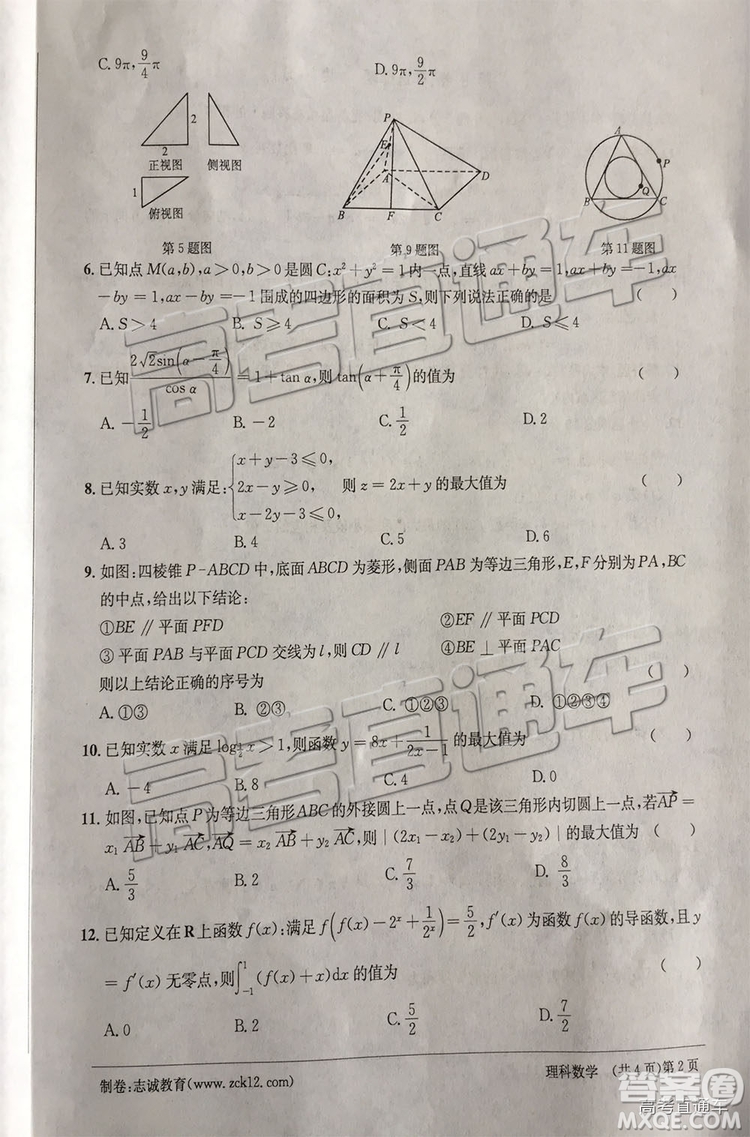 C. 9π, 9/4 π D. 9π, 9/2 π
2 2 正视图 侧视图
1 俯视图
P E A B F C D
A P B Q C
第5题图 第9题图 第11题图
6. 已知点 M(a,b),a>0,b>0 是圆 C:x²+y²=1 内一点,直线 ax+by=1,ax+by=-1,ax
-by=1,ax-by=-1 围成的四边形的面积为 S,则下列说法正确的是 ( )
A. S>4 B. S⩾4 C. S<4 D. S⩽4
7. 已知 2√2sin(α-π/4)/cosα =1+tanα,则 tan(α+π/4)的值为 ( )
A. -1/2 B. -2 C. 1/2 D. 2
8. 已知实数 x,y 满足:{x+y-3⩽0, 2x-y⩾0, x-2y-3⩽0, 则 z=2x+y 的最大值为 ( )
A. 3 B. 4 C. 5 D. 6
9. 如图:四棱锥 P-ABCD 中,底面 ABCD 为菱形,侧面 PAB 为等边三角形,E,F 分别为 PA,BC
的中点,给出以下结论:
①BE∥平面 PFD ②EF∥平面 PCD
③平面 PAB 与平面 PCD 交线为 l,则 CD∥l ④BE⊥平面 PAC
则以上结论正确的序号为 ( )
A. ①③ B. ②③ C. ①②③ D. ①②③④
10. 已知实数 x 满足 log_{1/2} x>1,则函数 y=8x+1/(2x-1) 的最大值为 ( )
A. -4 B. 8 C. 4 D. 0
11. 如图,已知点 P 为等边三角形 ABC 的外接圆上一点,点 Q 是该三角形内切圆上一点,若 AP→=
x₁ AB→+y₁ AC→,AQ→=x₂ AB→+y₂ AC→,则 |(2x₁-x₂)+(2y₁-y₂)| 的最大值为 ( )
A. 5/3 B. 2 C. 7/3 D. 8/3
12. 已知定义在 R 上函数 f(x):满足 f(f(x)-2ˣ+1/2ˣ)=5/2,f′(x) 为函数 f(x) 的导函数,且 y
=f′(x) 无零点,则∫₋₁¹(f(x)+x)dx 的值为 ( )
A. 0 B. 2 C. 5/2 D. 7/2
制卷:志诚教育(www.zck12.com) 理科数学 (共4页)第2页
高考直通车
高考直通车
答案圈
高考直通车
MXQE.COM